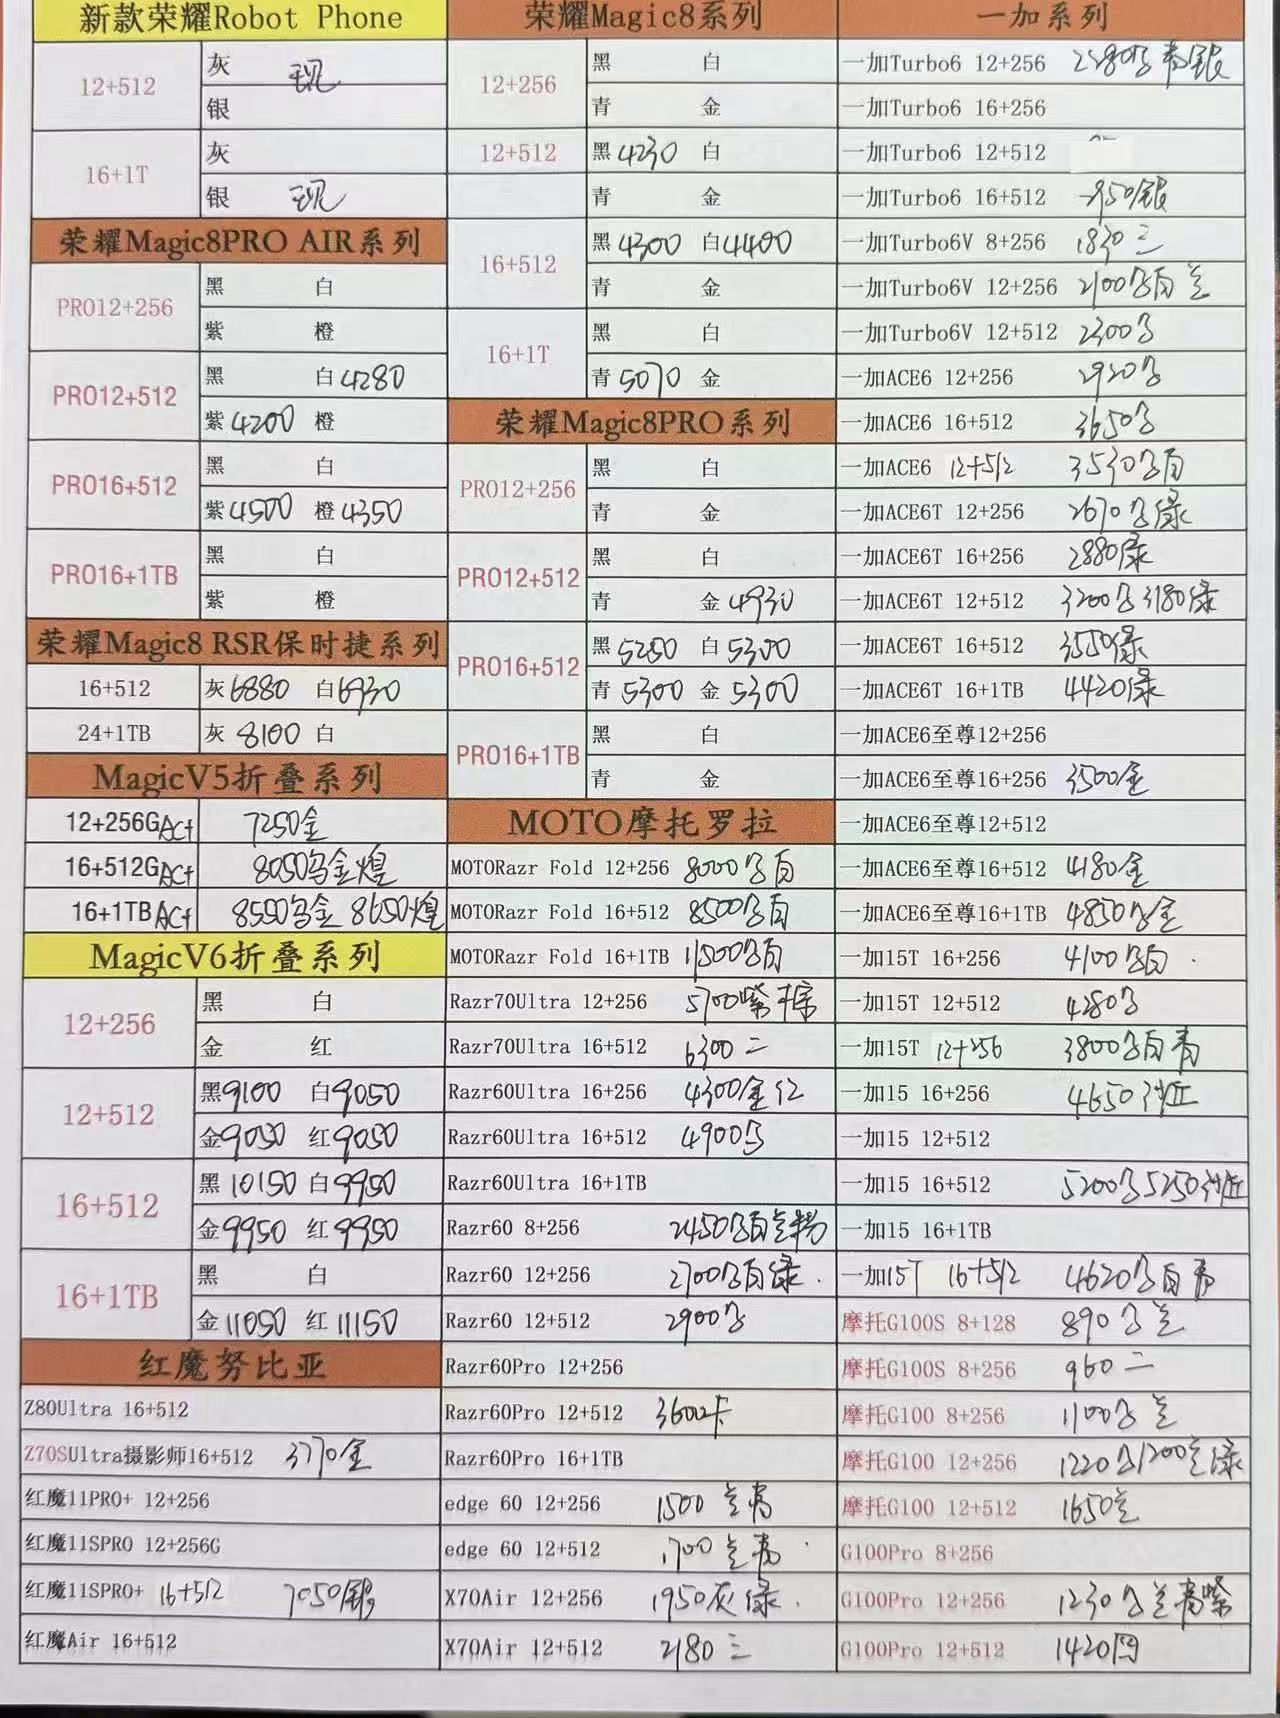 新款荣耀Robot Phone
12+512
灰 现
银
16+1T
灰
银 现
荣耀Magic8PRO AIR系列
PRO12+256
黑 白
紫 橙
PRO12+512
黑 白4280
紫4200 橙
PRO16+512
黑 白
紫4500 橙4350
PRO16+1TB
黑 白
紫 橙
荣耀Magic8 RSR保时捷系列
16+512 灰6880 白6930
24+1TB 灰8100 白
MagicV5折叠系列
12+256G 7250金
16+512G 8050乌金煌
16+1TB 8550乌金 8650煌
MagicV6折叠系列
12+256
黑 白
金 红
12+512
黑9100 白9050
金9050 红9050
16+512
黑10150 白9950
金9950 红9950
16+1TB
黑 白
金11050 红11150
红魔努比亚
Z80Ultra 16+512
Z70SUltra摄影师16+512 3770金
红魔11PRO+ 12+256
红魔11SPRO 12+256G
红魔11SPRO+ 16+512 7050银
红魔Air 16+512
荣耀Magic8系列
12+256
黑 白
青 金
12+512
黑4230 白
青 金
16+512
黑4300 白4400
青 金
16+1T
黑 白
青5070 金
荣耀Magic8PRO系列
PRO12+256
黑 白
青 金
PRO12+512
黑 白
青 金4930
PRO16+512
黑 白5300
青5300 金5300
PRO16+1TB
黑 白
青 金
MOTO摩托罗拉
MOTORazr Fold 12+256 8000 白
MOTORazr Fold 16+512 8500 白
MOTORazr Fold 16+1TB 11500 白
Razr70Ultra 12+256 5700紫
Razr70Ultra 16+512 6300二
Razr60Ultra 16+256 4300金红
Razr60Ultra 16+512 4900
Razr60Ultra 16+1TB
Razr60 8+256 2450 白兰粉
Razr60 12+256 2700 白绿
Razr60 12+512 2900
Razr60Pro 12+256
Razr60Pro 12+512 3600卡
Razr60Pro 16+1TB
edge 60 12+256 1500兰青
edge 60 12+512 1700兰青
X70Air 12+256 1950灰绿
X70Air 12+512 2180三
一加系列
一加Turbo6 12+256 青银
一加Turbo6 16+256
一加Turbo6 12+512
一加Turbo6 16+512 银
一加Turbo6V 8+256 1830三
一加Turbo6V 12+256 2100 白兰
一加Turbo6V 12+512 2300
一加ACE6 12+256 2920
一加ACE6 16+512 3650
一加ACE6 12+512 3530 白
一加ACE6T 12+256 2670 绿
一加ACE6T 16+256 2880绿
一加ACE6T 12+512 3200 3180绿
一加ACE6T 16+512 3550绿
一加ACE6T 16+1TB 4420绿
一加ACE6至尊12+256
一加ACE6至尊16+256 3500金
一加ACE6至尊12+512
一加ACE6至尊16+512 4180金
一加ACE6至尊16+1TB 4850 金
一加15T 16+256 4100 白
一加15T 12+512 4280
一加15T 12+256 3800 白青
一加15 16+256 4650沙丘
一加15 12+512
一加15 16+512 5200 5250沙丘
一加15 16+1TB
一加15T 16+512 4620 白青
摩托G100S 8+128 890 兰
摩托G100S 8+256 960二
摩托G100 8+256 1100 兰
摩托G100 12+256 1220 1200兰绿
摩托G100 12+512 1650兰
G100Pro 8+256
G100Pro 12+256 1230 兰青紫
G100Pro 12+512 1420四